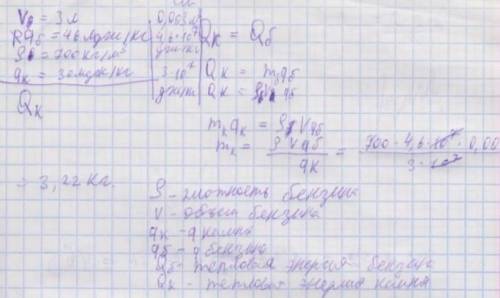 Vб = 3 л | 0,003 м
qб = 46 МДж/кг | 4,6·10⁷ Дж/кг
ρ = 700 кг/м³
qк = 30 МДж/кг | 3·10⁷ Дж/кг
Qк
Qк = Qб
Qк = mqб
Qк = ρVqб
mкqк = ρVqб
mк = ρVqб / qк = 700·4,6·10⁷·0,00 / 3·10⁷
= 3,22 кг.
ρ - плотность бензина
V - объём бензина
qк - q камня
qб - q бензина
Qб - тепловая энергия бензина
Qк - тепловая энергия камня